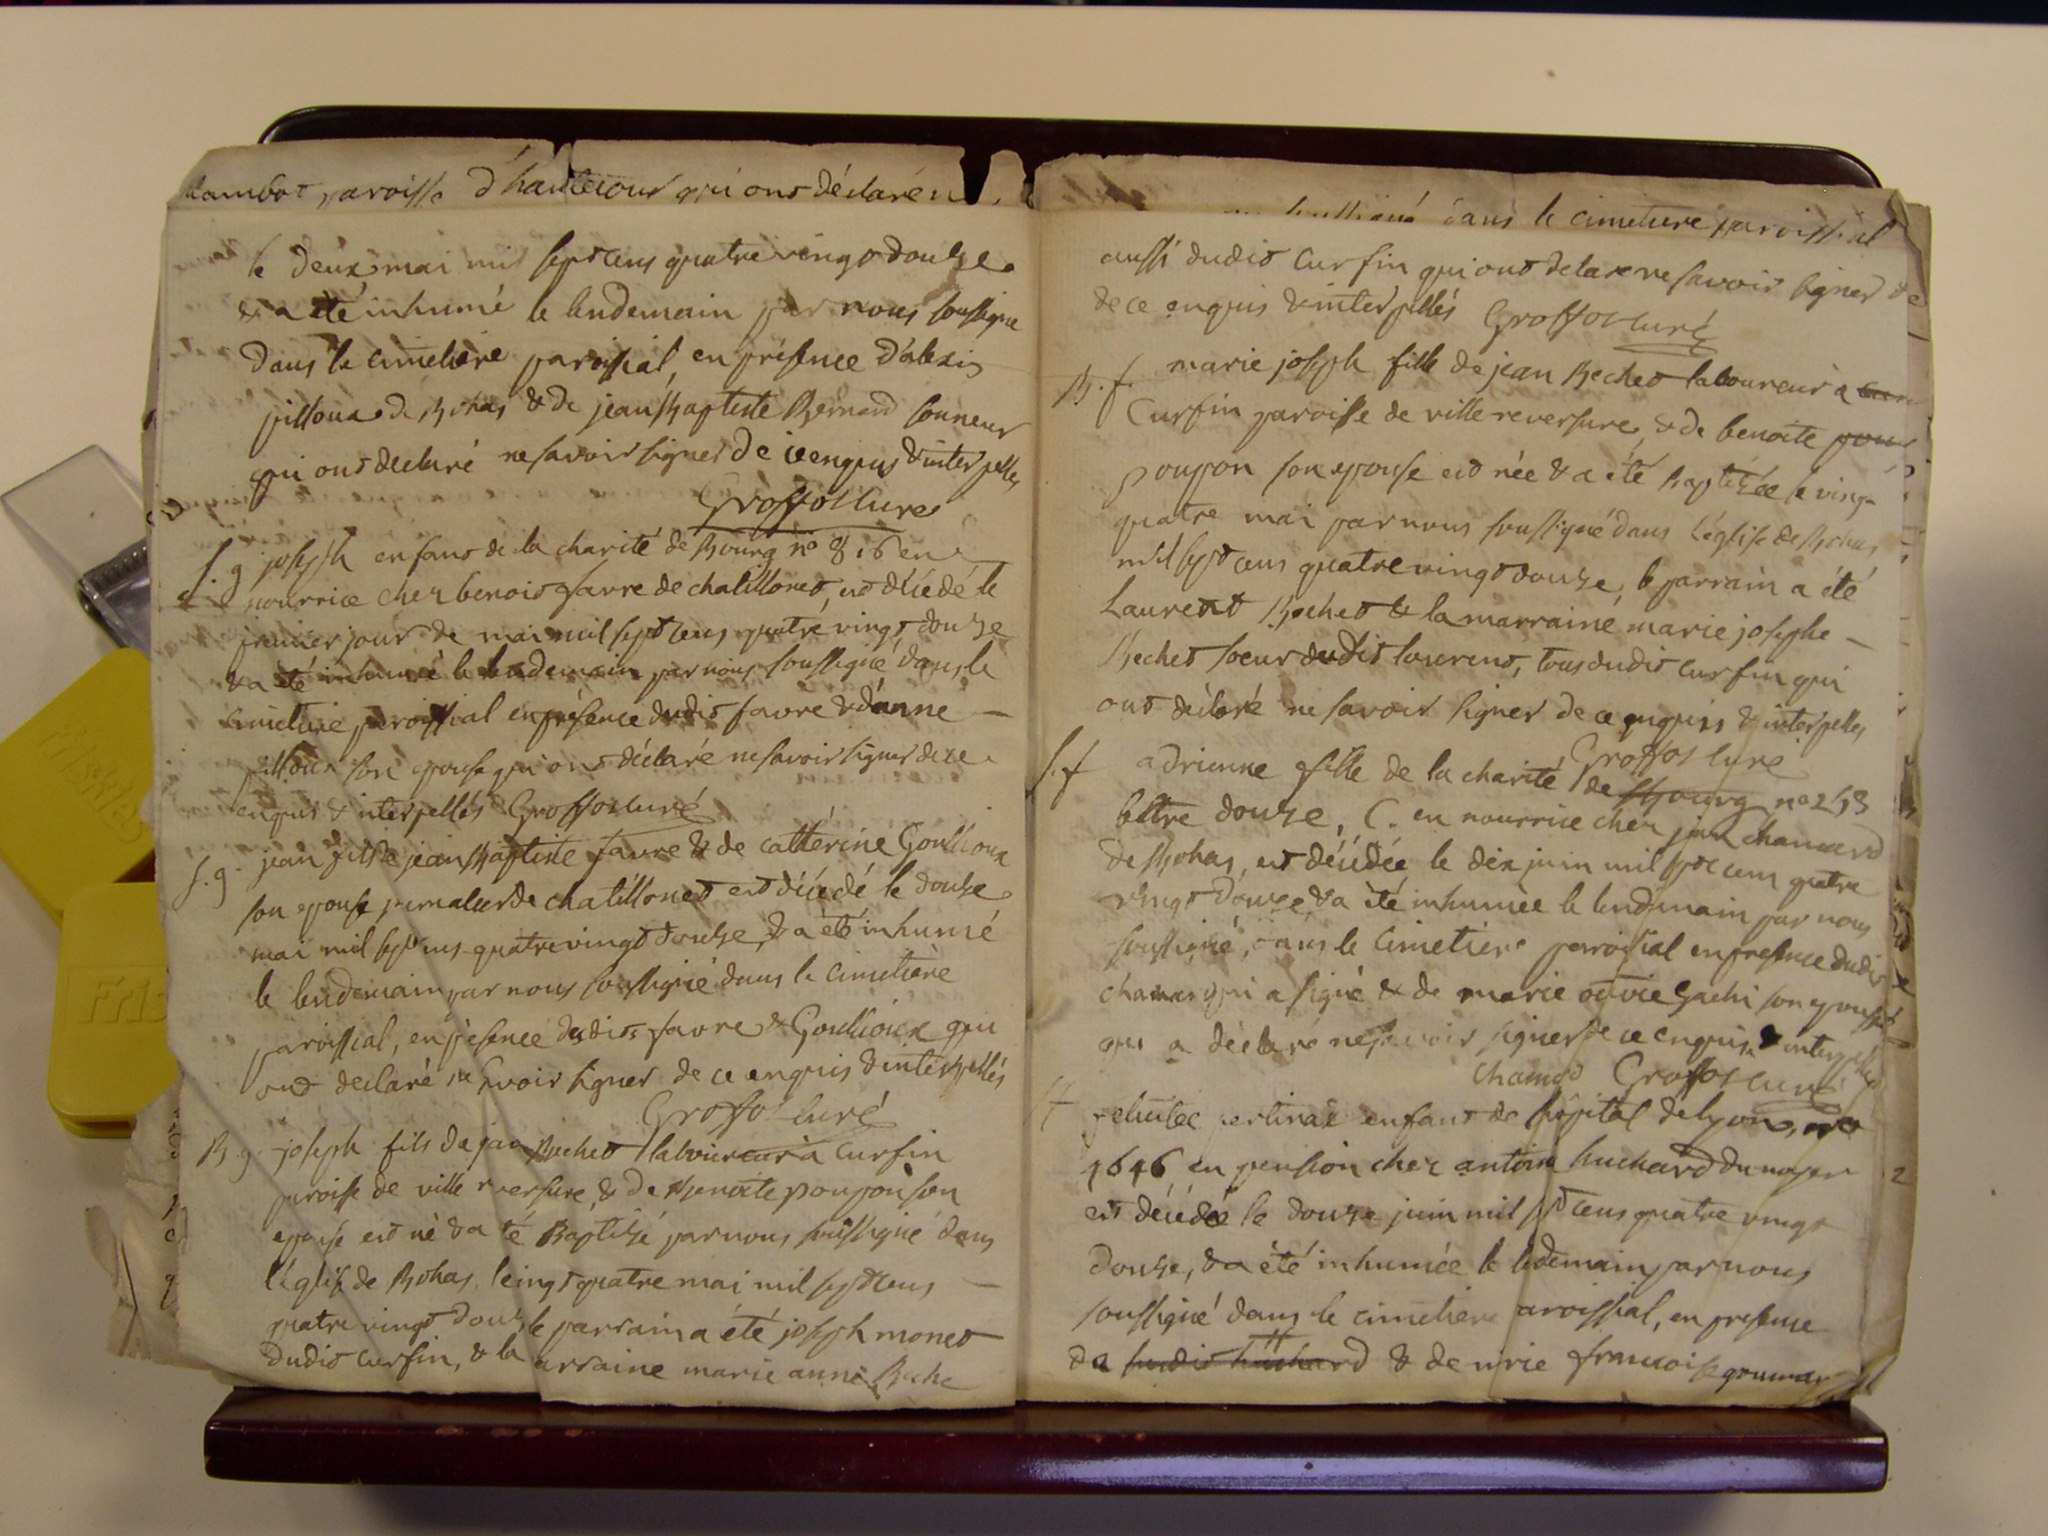 paroisse d'hautecour qui ont déclaré
le deux mai mil sept cens quatre vingt douze
& a été inhumé le lendemain par nous soussigné
dans le cimetiere paroissial, en présence d'alexis
pilloux de Rohas & de jean Baptiste Bernard sonneur
qui ont declaré ne savoir signer de ce enquis & interpellés
Groffos curé
s.g joseph enfant de la charité de Bourg no 816 en
nourrice chez benoit favre de chatillonet, est décédé le
premier jour de mai mil sept cens quatre vingt douze
& a été inhumé le lendemain par nous soussigné dans le
cimetiere paroissial en présence dudit favre & d'anne
pilloux son epouse qui ont déclaré ne savoir signer de ce
enquis & interpellés Groffos curé
s.g. jean fils de jean Baptiste favre & de cathérine Goullioux
son epouse de chatillonet est décedé le douze
mai mil sept cens quatre vingt douze, & a été inhumé
le lendemain par nous soussigné dans le cimetière
paroissial, en présence dudit favre & Goullioux qui
ont declaré ne savoir signer de ce enquis & interpellés
Groffos curé
B.g. joseph fils de jean Bechet laboureur à Curfin
paroisse de ville reversure & de Benoite poupon son
epouse est né & a été Baptisé par nous soussigné dans
l'église de Rohas le vingt quatre mai mil sept cens
quatre vingt douze le parrain a été joseph monet
dudit curfin, & la marraine marie anne Beche
dans le cimetiere paroissial
aussi dudit Curfin qui ont declaré ne savoir signer de
de ce enquis & interpellés Groffos curé
B.f. marie joseph fille de jean Bechet laboureur a
Curfin paroisse de ville reversure, & de benoite
poupon son epouse est née & a été Baptisée le vingt
quatre mai par nous soussigné dans l'église de Rohas
mil sept cens quatre vingt douze, le parrain a été
Laurent Bechet & la marraine marie josephe
Bechet soeur dudit laurent, tous dudit curfin qui
ont déclaré ne savoir signer de ce enquis & interpellés
Groffos curé
s.f adrienne fille de la charité de Bourg no 253
lettre douze, C. en nourrice chez jean chanard
de Rohas, est décédée le dix juin mil sept cens quatre
vingt douze & a été inhumée le lendemain par nous
soussigné, dans le Cimetiere paroissial en presence dudit
qui a signé & de marie son epouse
qui a déclaré ne savoir signer de ce enquis & interpellés
Groffos curé
enfant de l'hôpital de Lyon, no
1646 en pension chez antoine huchard du noyer
est décédée le douze juin mil sept cens quatre vingt
douze, & a été inhumée le lendemain par nous
soussigné dans le cimetiere paroissial, en presence
de dudit huchard & de marie francoise
Friskies
Fris
2